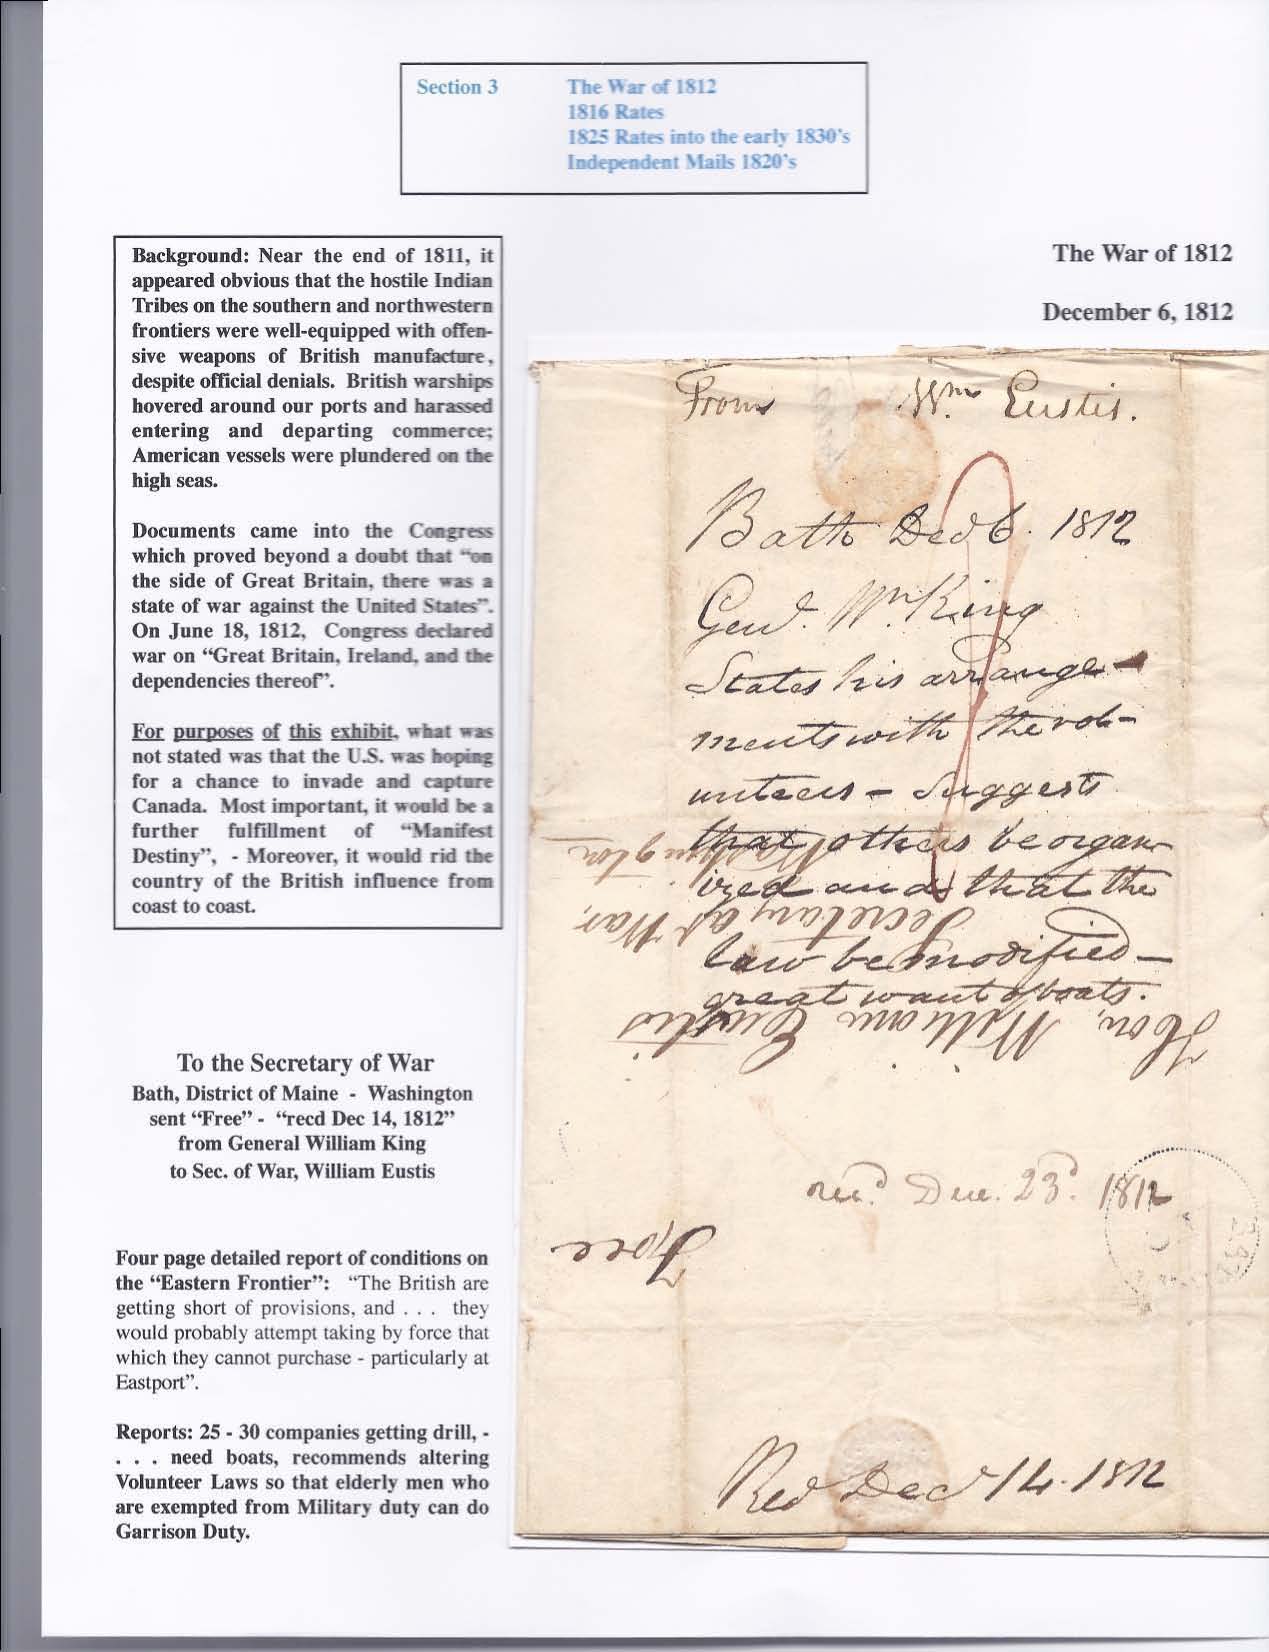 Section 3
The War of 1812
1816 Rates
1825 Rates into the early 1830's
Independent Mails 1820's
Background: Near the end of 1811, it
appeared obvious that the hostile Indian
Tribes on the southern and northwestern
frontiers were well-equipped with offen-
sive weapons of British manufacture,
despite official denials. British warships
hovered around our ports and harassed
entering and departing commerce;
American vessels were plundered on the
high seas.
Documents came into the Congress
which proved beyond a doubt that “on
the side of Great Britain, there was a
state of war against the United States”.
On June 18, 1812, Congress declared
war on “Great Britain, Ireland, and the
dependencies thereof”.
For purposes of this exhibit, what was
not stated was that the U.S. was hoping
for a chance to invade and capture
Canada. Most important, it would be a
further fulfillment of “Manifest
Destiny”, - Moreover, it would rid the
country of the British influence from
coast to coast.
To the Secretary of War
Bath, District of Maine - Washington
sent “Free” - “recd Dec 14, 1812”
from General William King
to Sec. of War, William Eustis
Four page detailed report of conditions on
the “Eastern Frontier”: “The British are
getting short of provisions, and . . . they
would probably attempt taking by force that
which they cannot purchase - particularly at
Eastport”.
Reports: 25 - 30 companies getting drill, -
. . . need boats, recommends altering
Volunteer Laws so that elderly men who
are exempted from Military duty can do
Garrison Duty.
The War of 1812
December 6, 1812
From Wm Eustis.
Bath Dec 6. 1812
Genl. Wm King
States his arrange-
ments with the vol-
unteers - Suggests
that others be organ-
ized and that the
law be modified -
great want of boats.
Hon. William Eustis
Secretary at War,
Washington
recd. Dec. 23d. 1812
Free
Recd Dec 14. 1812